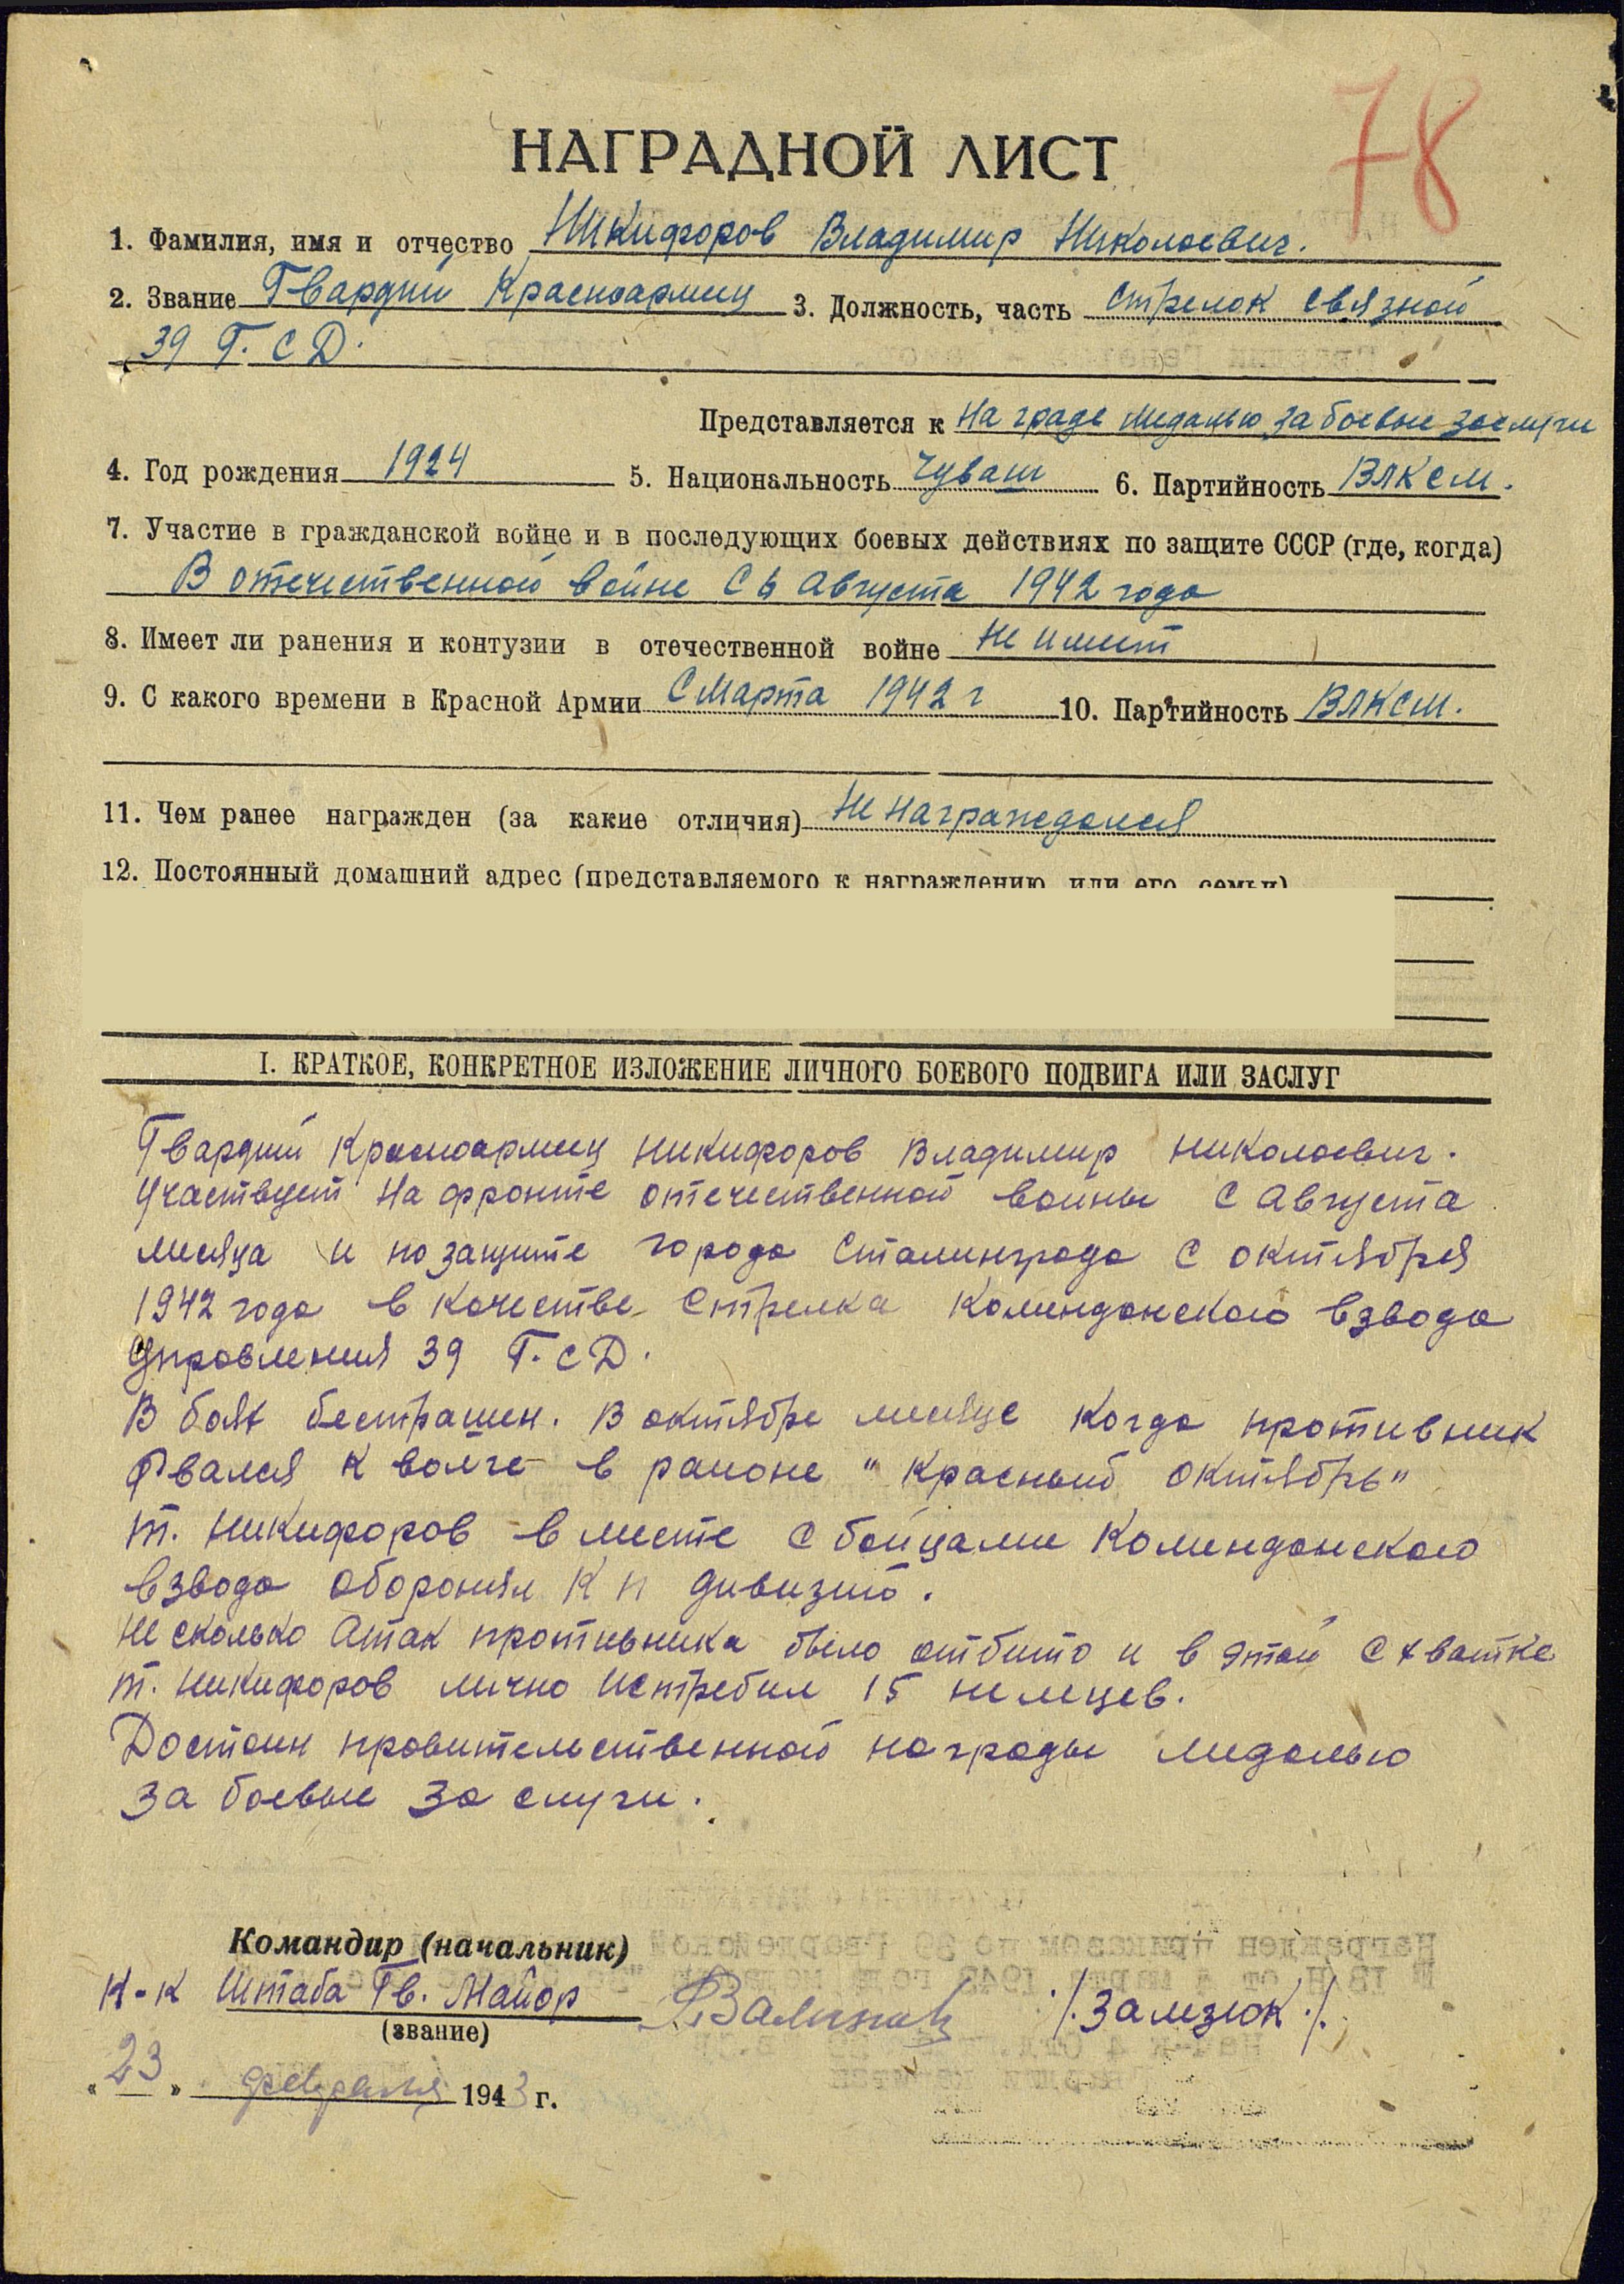 78
НАГРАДНОЙ ЛИСТ
1. Фамилия, имя и отчество Никифоров Владимир Николаевич.
2. Звание Гвардии Красноармеец 3. Должность, часть Стрелок связной
39 Г. С Д.
Представляется к На граде медалью за боевые заслуги
4. Год рождения 1924 5. Национальность Чуваш 6. Партийность ВЛКСМ.
7. Участие в гражданской войне и в последующих боевых действиях по защите СССР (где, когда)
В отечественной войне с 6 Августа 1942 года
8. Имеет ли ранения и контузии в отечественной войне Не имеет
9. С какого времени в Красной Армии С Марта 1942 г 10. Партийность ВЛКСМ.
11. Чем ранее награжден (за какие отличия) Не награждался
12. Постоянный домашний адрес (представляемого к награждению или его семьи)
I. КРАТКОЕ, КОНКРЕТНОЕ ИЗЛОЖЕНИЕ ЛИЧНОГО БОЕВОГО ПОДВИГА ИЛИ ЗАСЛУГ
Гвардии Красноармеец Никифоров Владимир Николаевич.
Участвует на фронте отечественной войны с Августа
месяца и по защите города Сталинграда с октября
1942 года в качестве Стрелка Коменданского взвода
Управления 39 Г. С Д.
В боях бестрашен. В октябре месяце когда противник
Рвался к волге в районе "Красный октябрь"
т. Никифоров в месте с бойцами Коменданского
взвода оборонял К П дивизии.
Не сколько Атак противника было отбито и в этой Схватке
т. Никифоров лично Истребил 15 немцев.
Достоин правительственной награды медалью
За боевые За слуги.
Командир (начальник)
Н-к Штаба Гв. Майор /Залзюк./
(звание)
"23" февраля 1943 г.